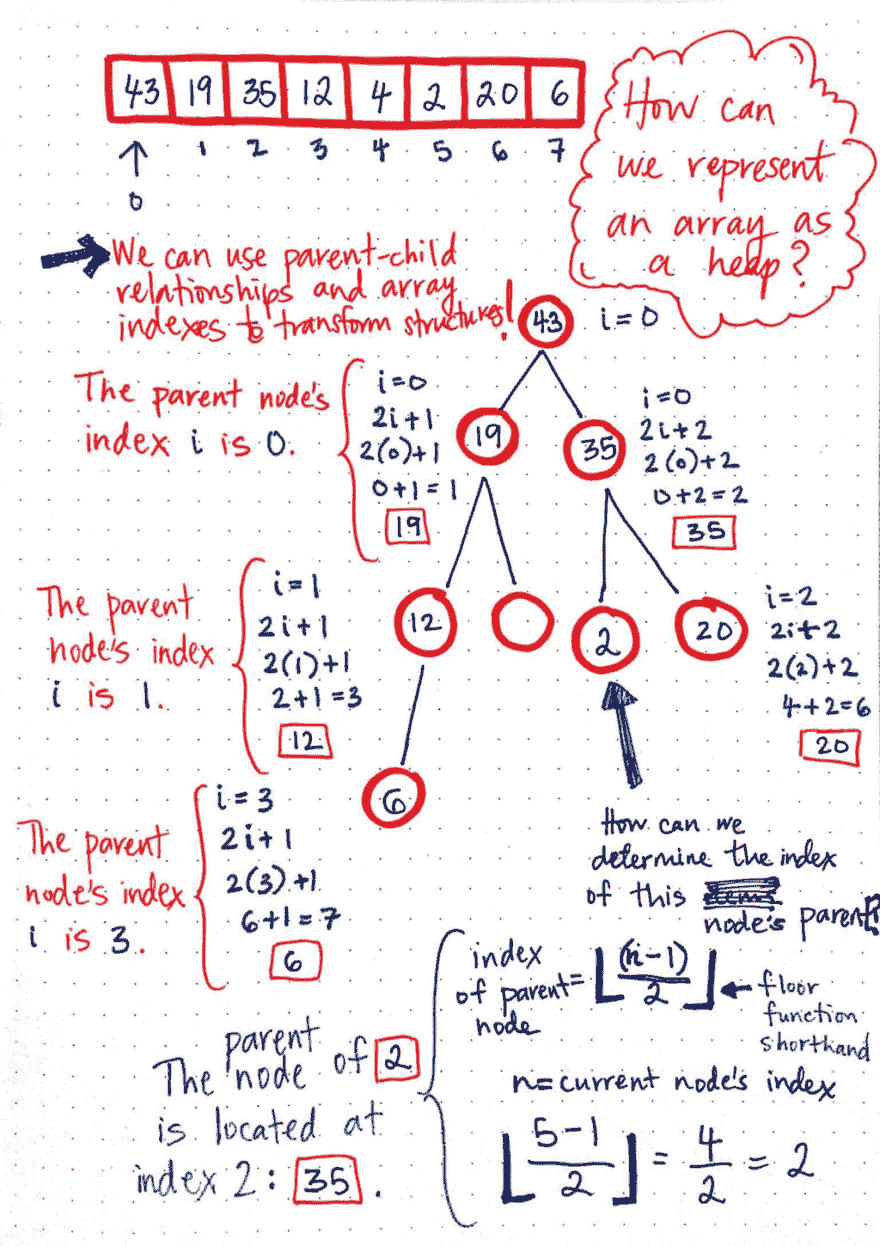 43 19 35 12 4 2 20 6
1 2 3 4 5 6 7
0
How can
we represent
an array as
a heap?
We can use parent-child
relationships and array
indexes to transform structures!
43
i=0
The parent node's
index i is 0.
i=0
2i+1
2(0)+1
0+1=1
19
19
35
i=0
2i+2
2(0)+2
0+2=2
35
The parent
node's index
i is 1.
i=1
2i+1
2(1)+1
2+1=3
12
12
2
20
i=2
2i+2
2(2)+2
4+2=6
20
6
The parent
node's index
i is 3.
i=3
2i+1
2(3)+1
6+1=7
6
How can we
determine the index
of this
node's parent?
index
of parent=
node
⌊(n-1)/2⌋
floor
function
shorthand
n=current node's index
⌊5-1/2⌋ = 4/2 = 2
The parent node of 2
is located at
index 2: 35.